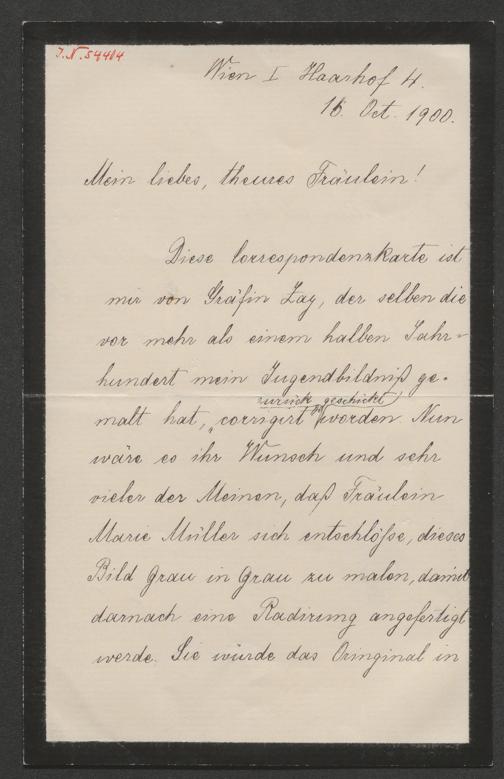 J.N. 54404
Wien I Haarhof 4.
16. Oct. 1900.
Mein liebes, theures Fräulein!
Diese Correspondenzkarte ist
mir von Gräfin Zay, der selben die
vor mehr als einem halben Jahr-
hundert mein Jugendbildniß ge-
zurück geschickt
malt hat, „corrigirt“ worden. Nun
wäre es ihr Wunsch und sehr
vieler der Meinen, daß Fräulein
Marie Müller sich entschlöße, dieses
Bild Grau in Grau zu malen, damit
darnach eine Radirung angefertigt
werde. Sie würde das Oringinal in